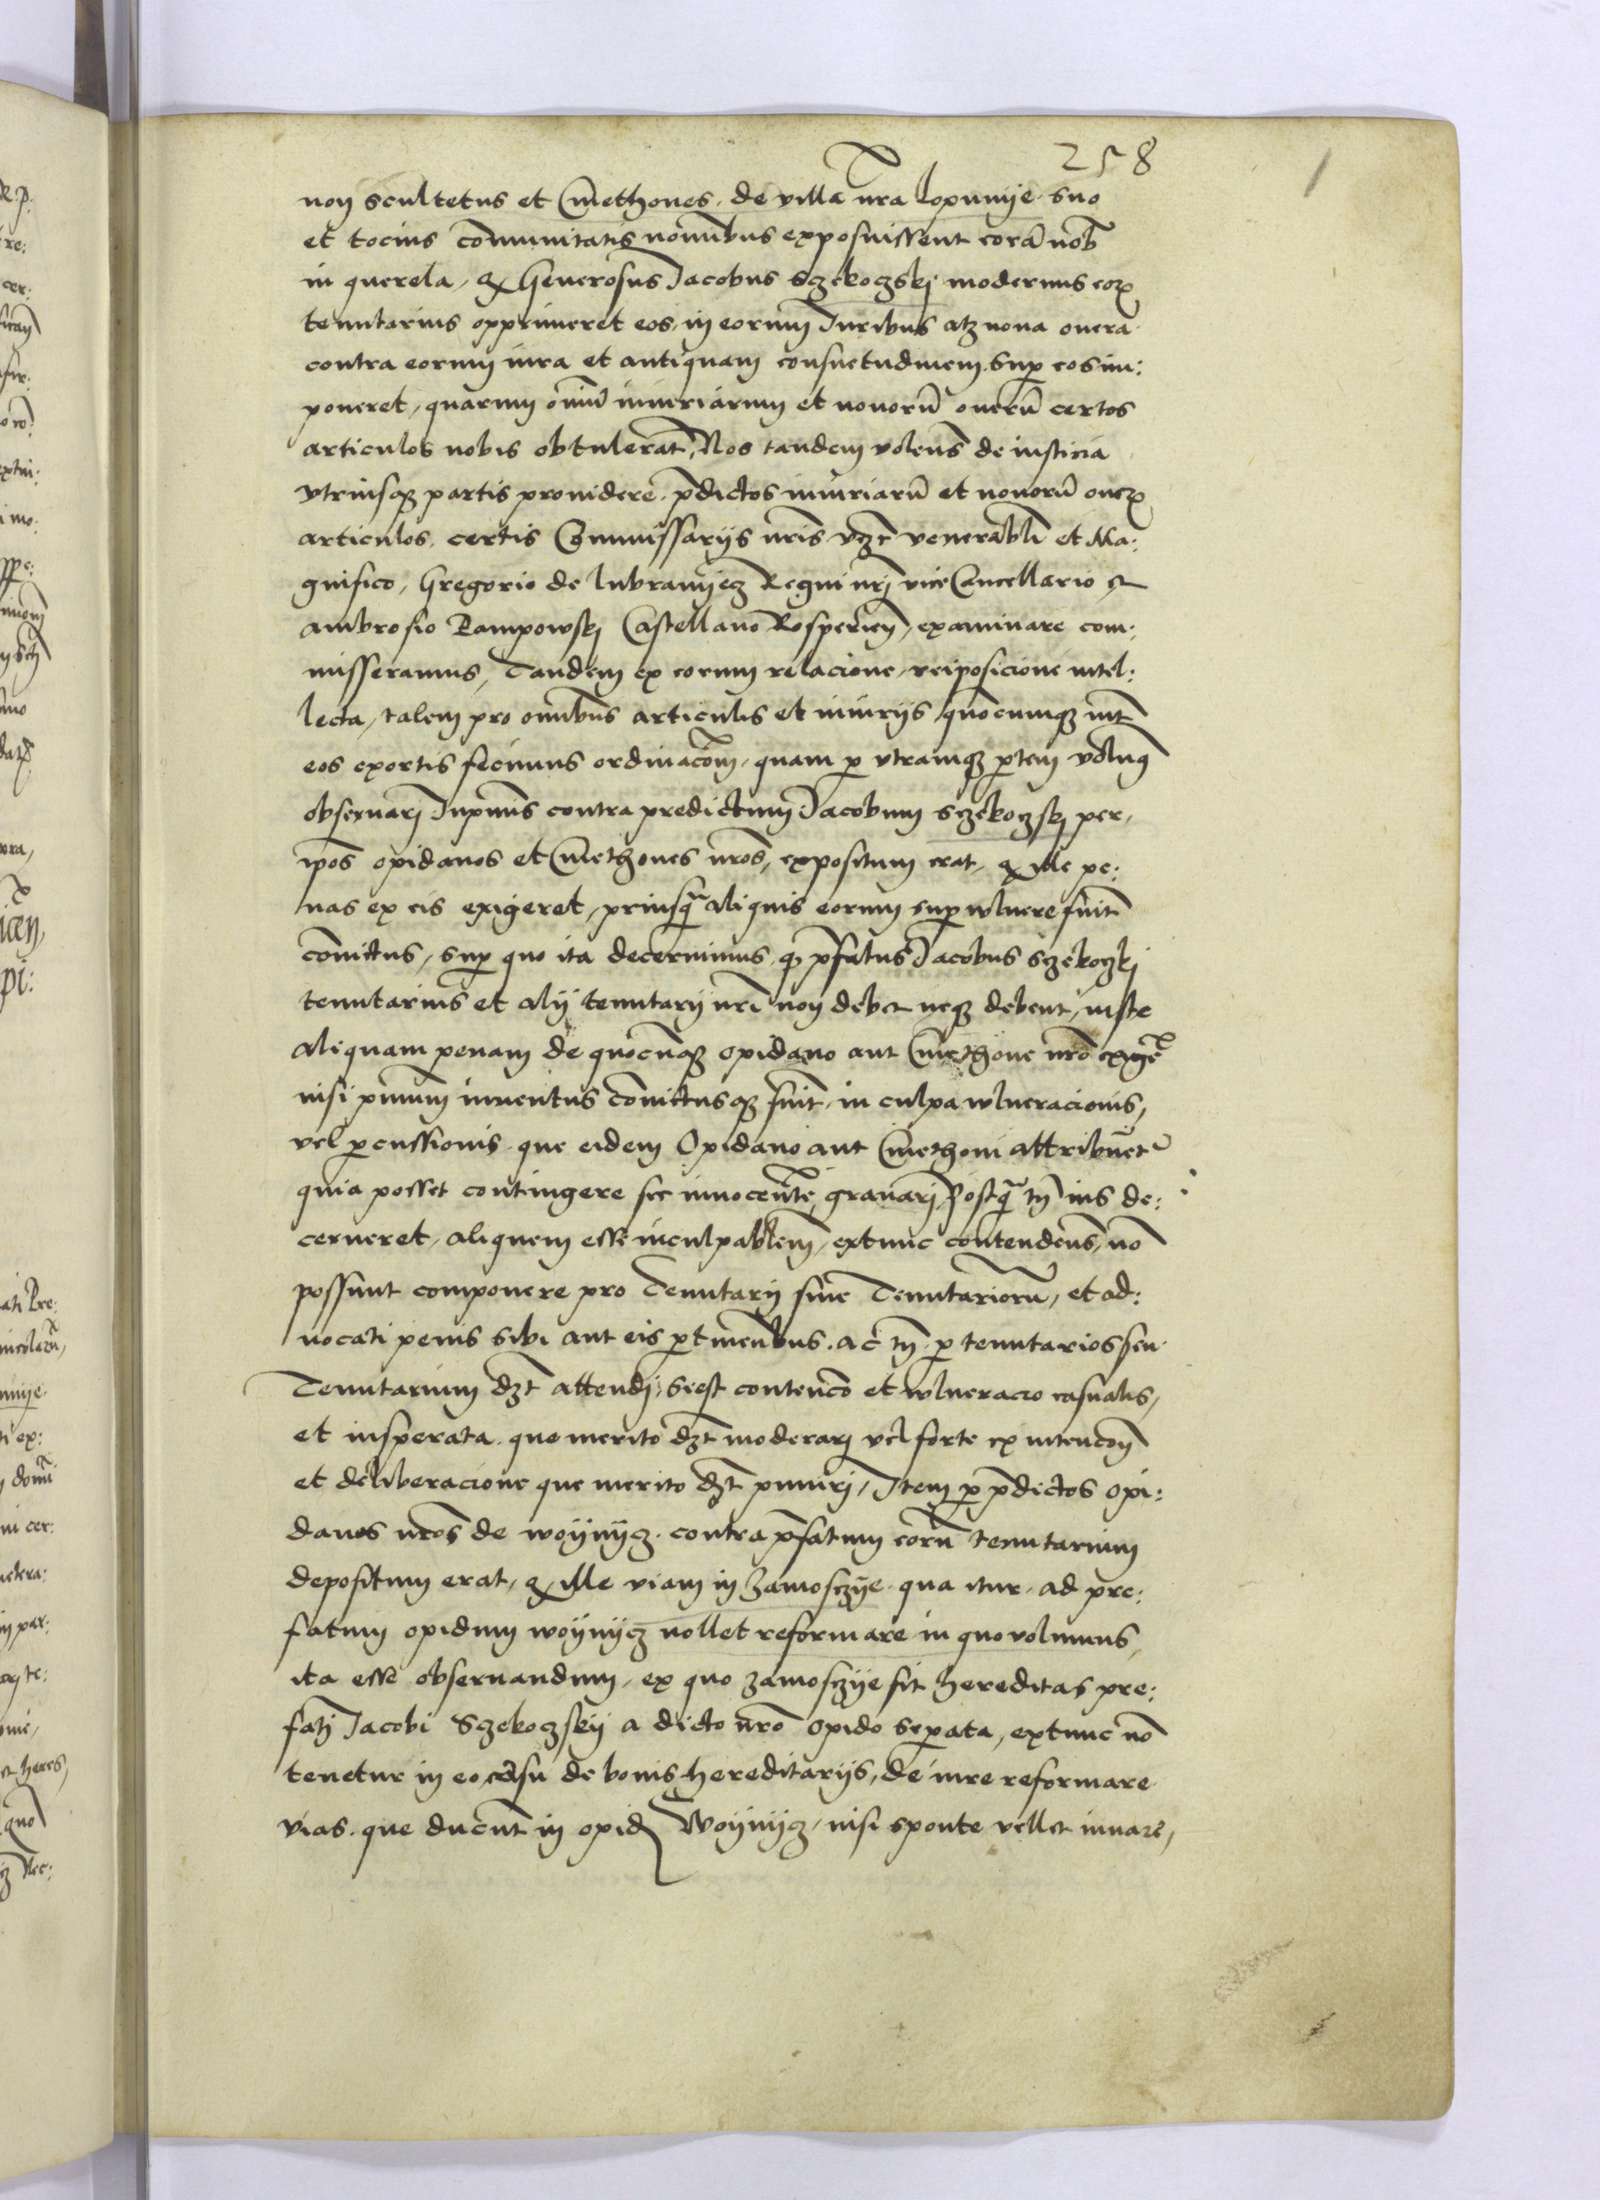 258
non scultetus et Cmethones de villa nra Lopunije suo
et tocius comunitatis nominibus exposuissent corã nob
in querela, q Generosus Jacobus Szekoczskj modernus eoz
tenutarius opprimeret eos in eorum Juribus atqz nova onera
contra eorum iura et antiquam consuetudinem sup eos im:
poneret, quarum omiũ iniuriarum et novorũ onerũ certos
articulos nobis obtulerat, Nos tandem volens de iusticia
vtriusqz partis providere, pdictos iniuriarũ et novorũ onez
articulos certis Commissarijs nris vzt venerabli et Ma:
gnifico, Gregorio de lubranijecz Regni nrj viceCancellario et
ambrosio Pampowskj Castellano Rosperien, examinare com:
misseramus, Tandem ex eorum relacione, reiposicione intel:
lecta, talem pro omnibus articulis et iniurijs quocumqz int
eos exortis fecimus ordinacom, quam p vtramqz ptem volum9
observarj Inprimis contra predictum Jacobum Szekoczskj per
ipos opidanos et Cmethones nros, expositum erat, q ille pe:
nas ex eis exigeret, priusq aliquis eorum sup wlnere fuit
convictus, sup quo ita decernimus, q pfatus Jacobus Szekoczkj
tenutarius et alij tenutarij nri non debet neqz debent, iuste
aliquam penam de quocunqz opidano aut Cmethone nro exigere
nisi primum inventus convictusqz fuit in culpa wlneracionis,
vel percussionis que eidem Opidano aut Cmethoni attribuet
quia posset contingere sic innocente gravarj, Postq tn ius de:
cerneret, aliquem esse inculpablem, extunc contendens, no
possunt componere pro Tenutarij sive Tenutariorũ, et ad:
vocati penis sibi aut eis ptinentbus. ac tn p tenutarios seu
Tenutarium dzt attendj, si est contenco et wlneracio casualis,
et insperata que merito dzt moderarj vel forte ex intencon
et deliberacione que merito dzt punirj, Item p pdictos opi:
danos nros de woijnijcz contra pfatum eorũ tenutarium
depositum erat, q ille viam in Zamosczije qua itur ad pre:
fatum opidum woijnijcz nollet reformare in quo volumus,
ita esse observandum, ex quo Zamosczije sit hereditas pre:
fatj Jacobi Szekoczskij a dicto nro Opido separata, extunc no
tenetur in eo casu de bonis hereditarijs, de iure reformare
vias que ducunt in opid Woijnijcz, nisi sponte vellet iuvare,